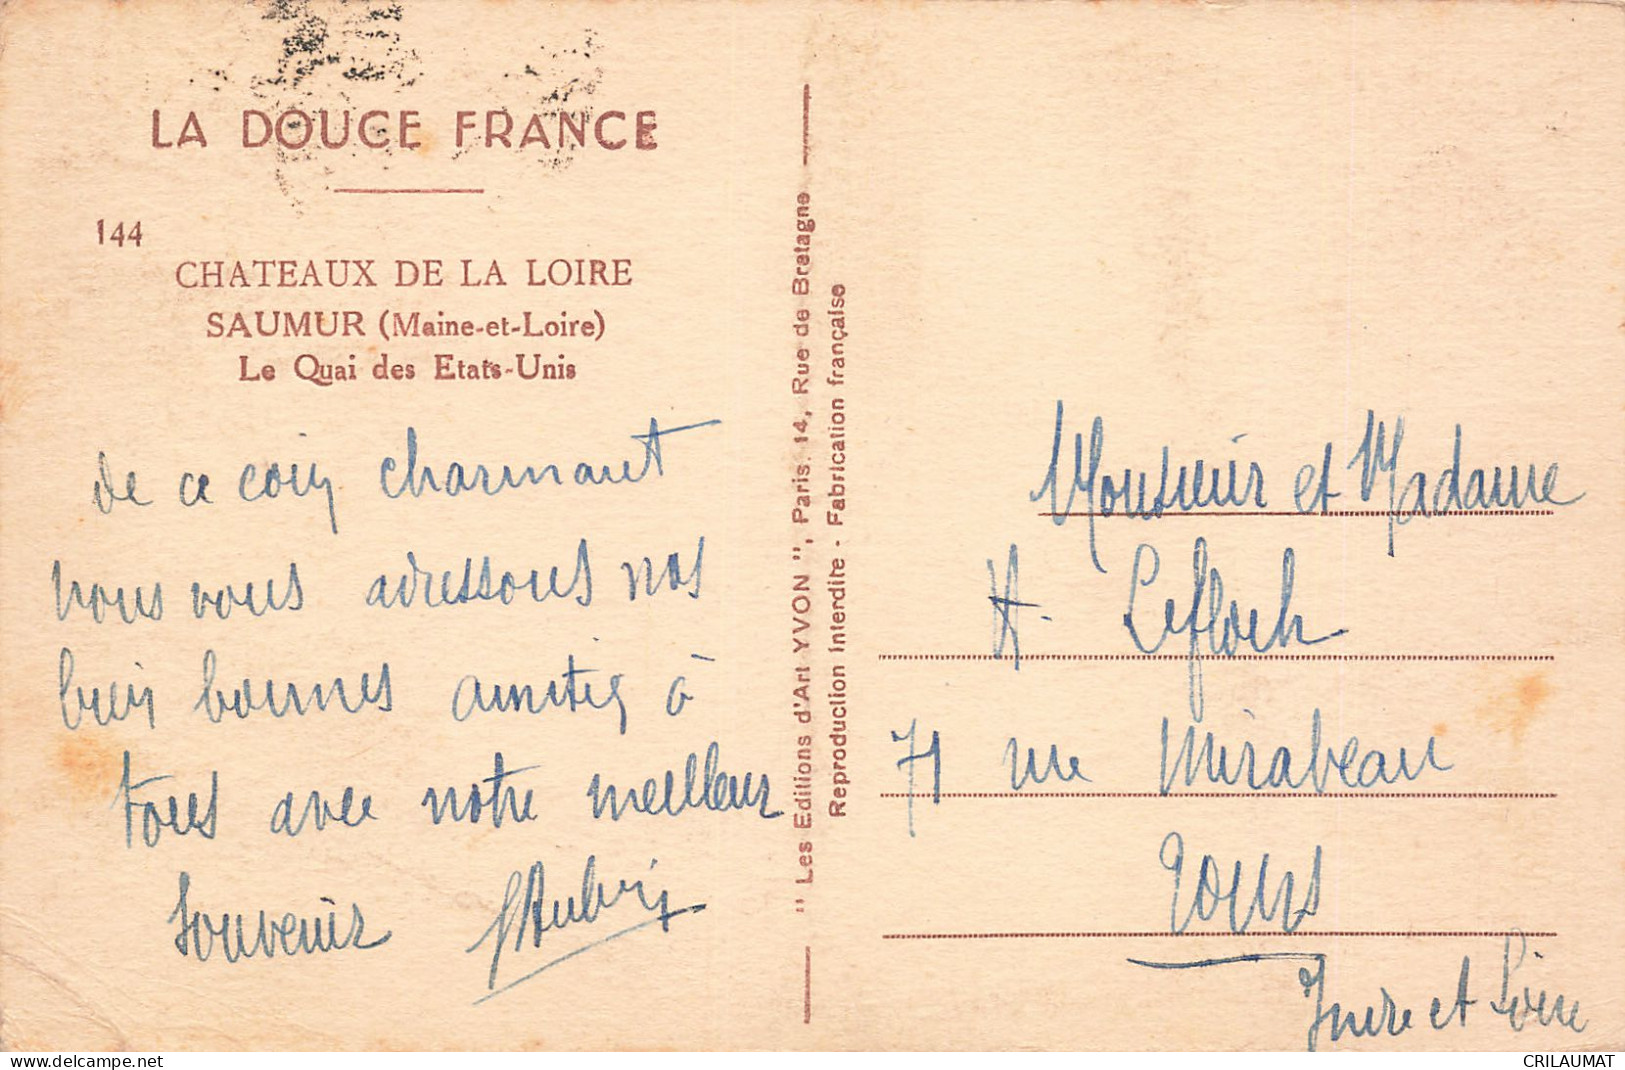 LA DOUCE FRANCE
144
CHATEAUX DE LA LOIRE
SAUMUR (Maine-et-Loire)
Le Quai des Etats-Unis
de ce coin charmant
nous vous adressons nos
bien bonnes amitiés à
tous avec notre meilleur
souvenir
" Les Editions d'Art YVON ", Paris, 14, Rue de Bretagne
Reproduction Interdite - Fabrication française
Monsieur et Madame
H. Lefloch
71 rue Mirabeau
Tours
Indre et Loire
www.delcampe.net
CRILAUMAT